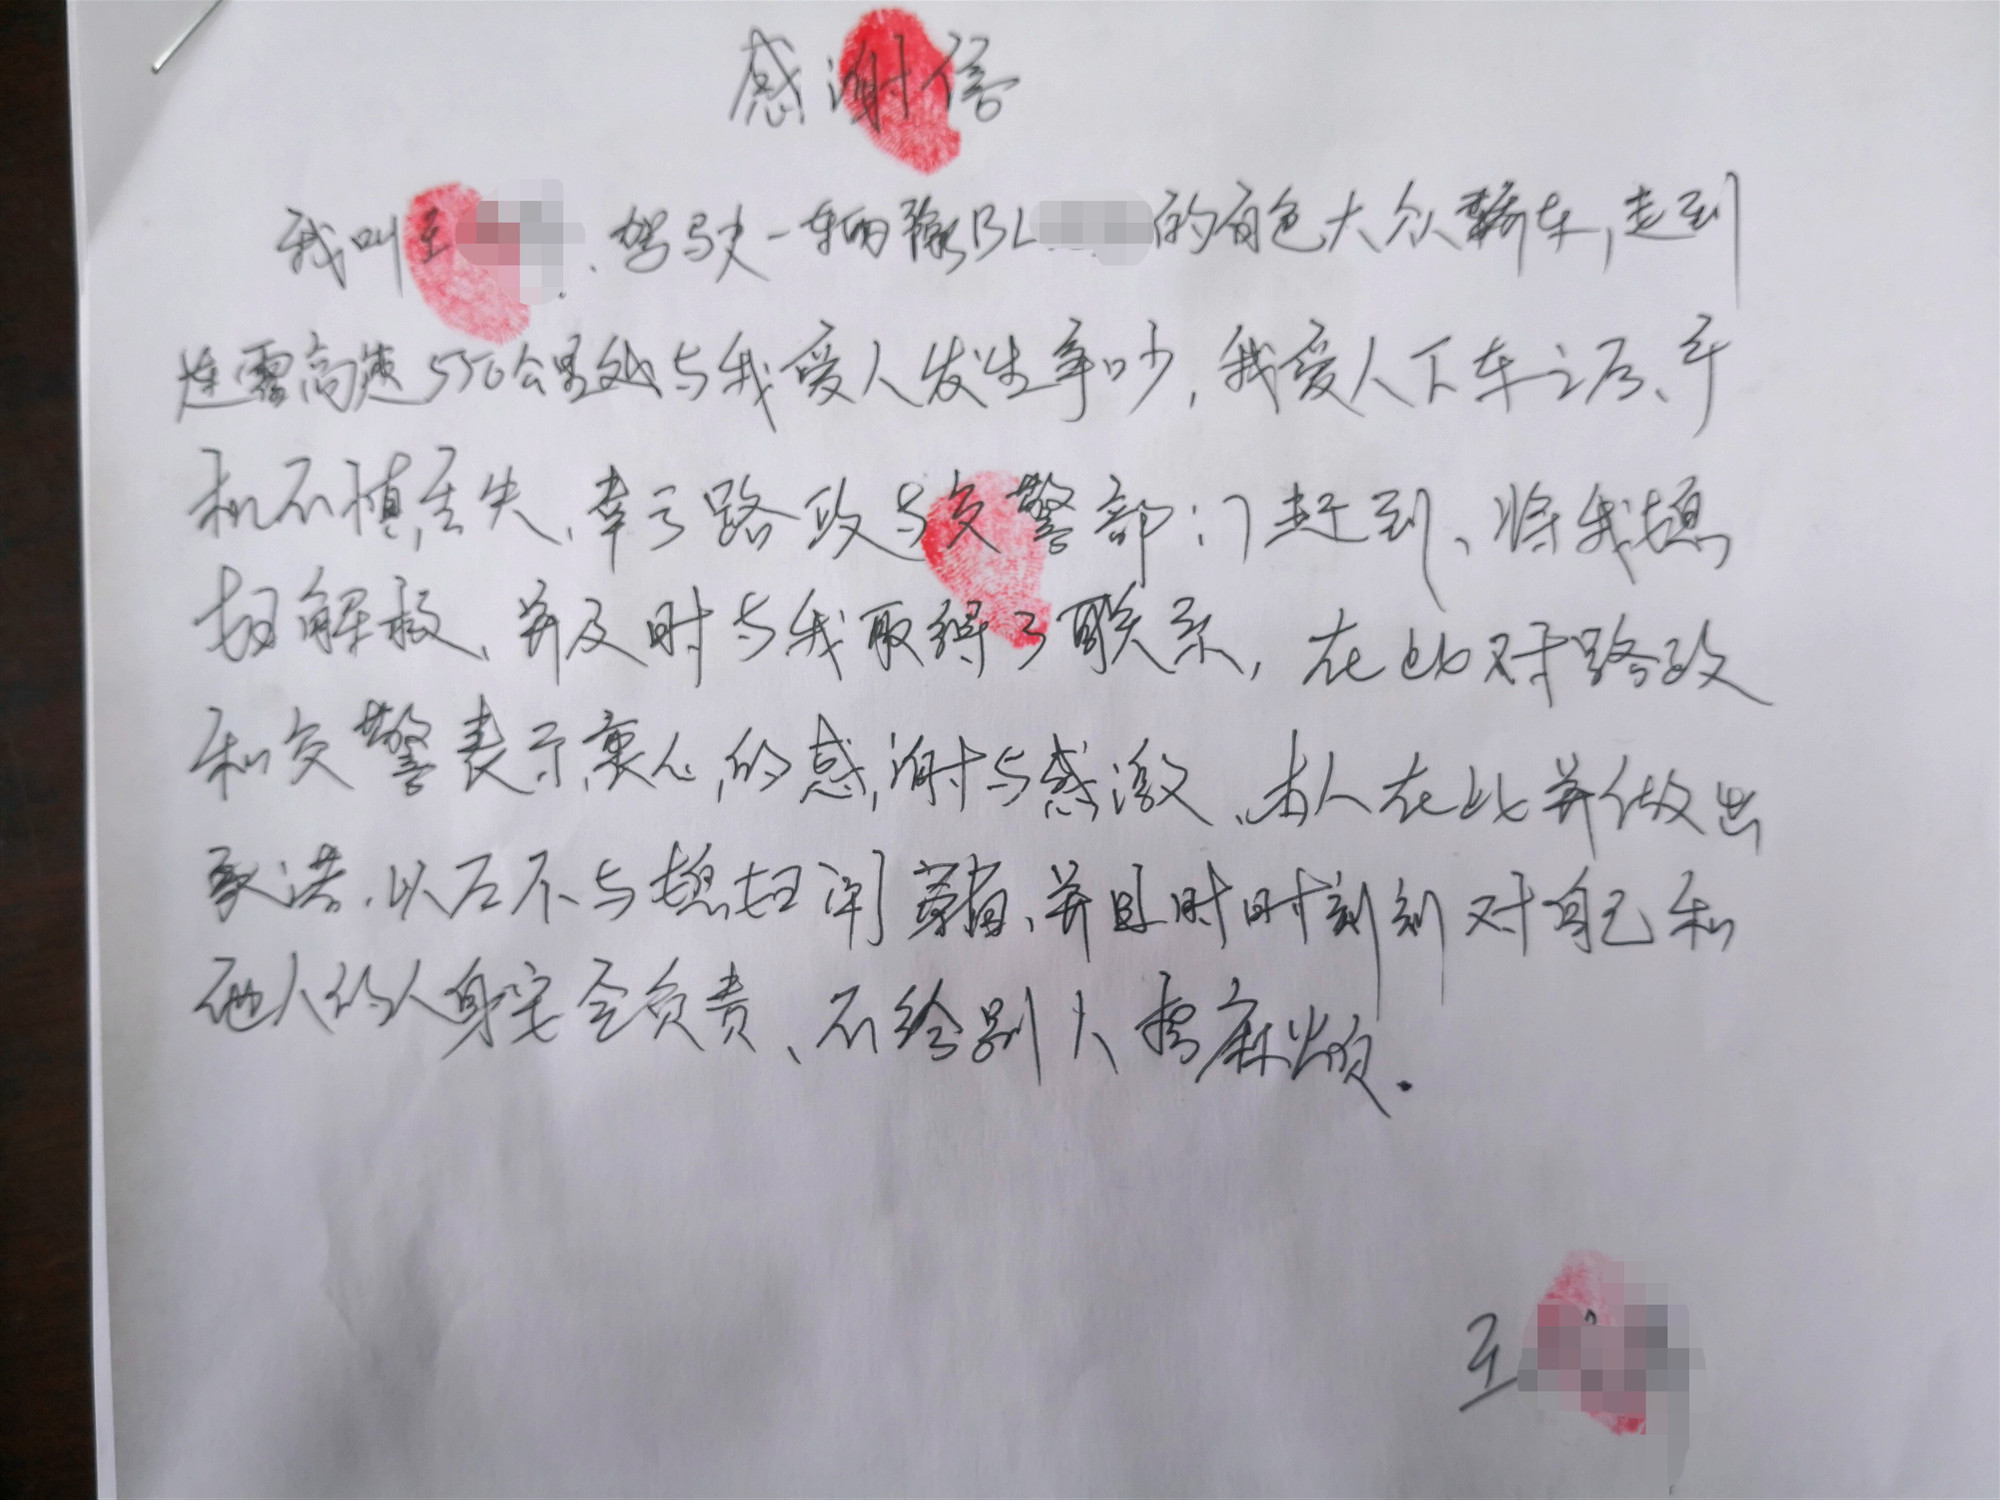 感谢信
我叫王、驾驶一辆豫BL的白色大众轿车,走到
连霍高速556公里处与我爱人发生争吵,我爱人下车之后、手
机不慎丢失、幸亏路政与交警部门赶到、将我媳
妇解救、并及时与我取得了联系,在此对路政
和交警表示衷心的感谢与感激、本人在此并做出
承诺、以后不与媳妇闹矛盾、并且时时刻刻对自己和
他人的人身安全负责、不给别人找麻烦.
王